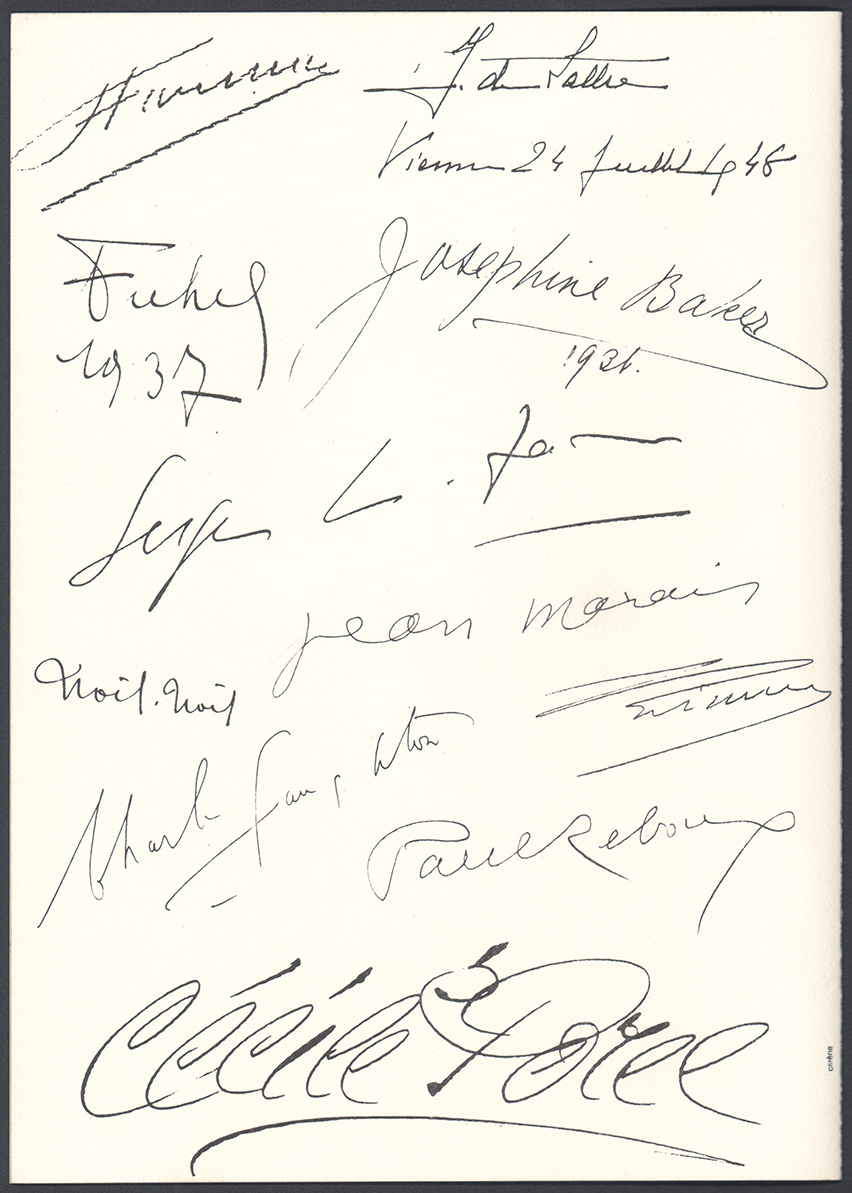 J. de Lattre
Vienne 24 Juillet 1948
Josephine Baker
1931.
1937
Serge
Jean Marais
Noël-Noël
Charles Laughton
Paul Reboux
Cécile Sorel
carène